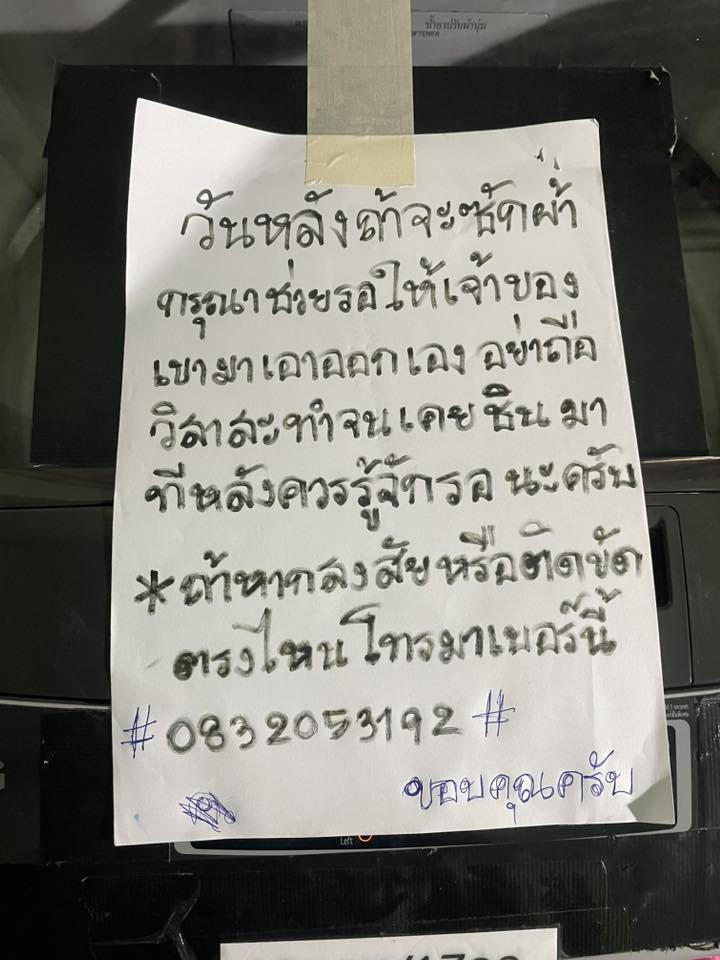 น้ำยาปรับผ้านุ่ม
SOFTENER
วันหลังถ้าจะซักผ้า
กรุณาช่วยรอให้เจ้าของ
เขามาเอาออกเอง อย่าถือ
วิสาสะทำจนเคยชินมา
ทีหลังควรรู้จักรอ นะครับ
*ถ้าหากสงสัยหรือติดขัด
ตรงไหนโทรมาเบอร์นี้
# 0832053192 #
ขอบคุณครับ
Left